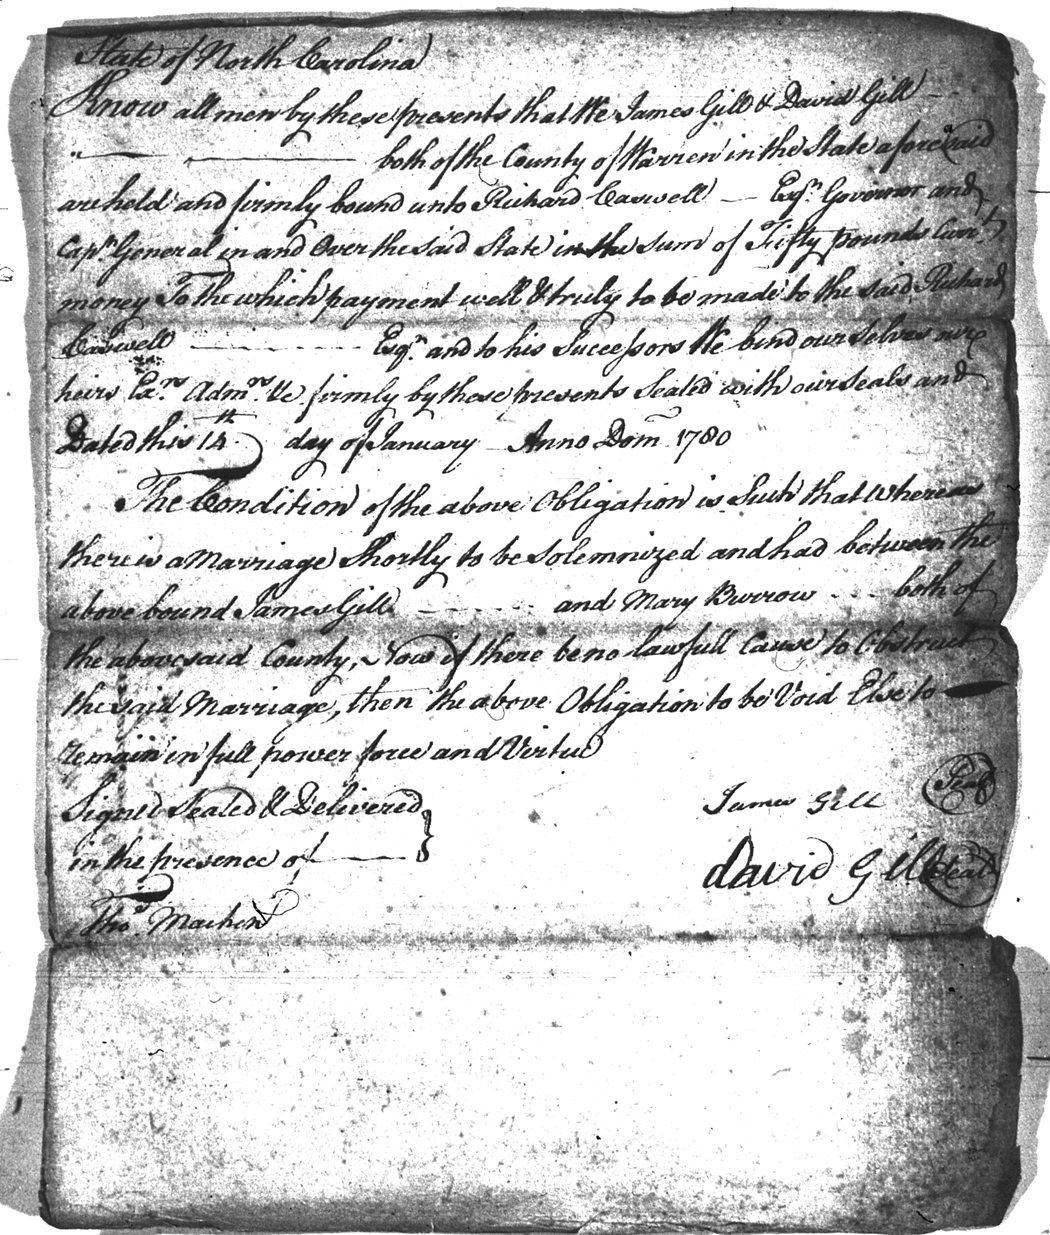 State of North Carolina
Know all men by these presents that We James Gill & David Gill
both of the County of Warren in the State aforesaid
are held and firmly bound unto Richard Caswell — Esqr. Govornor and
Capn. General in and Over the said State in the sum of Fifty pounds Curr.t
money To the which payment well & truly to be made to the said Richard
Caswell - - - - Esqr. and to his Successors We bind our selves our
heirs Exrs. Admrs. &c firmly by these presents Sealed with our seals and
Dated this 14th day of January Anno Dom. 1780
The Condition of the above Obligation is Such that Whereas
there is a Marriage Shortly to be Solemnized and had between the
above bound James Gill - - - - and Mary Burrow - - - both of
the abovesaid County, Now if there be no lawfull Cause to Obstruct
the said Marriage, then the above Obligation to be Void Else to —
remain in full power force and Virtue
Signed Sealed & Delivered
in the presence of —
James Gill Seal
David Gill Seal
Thos. Machen